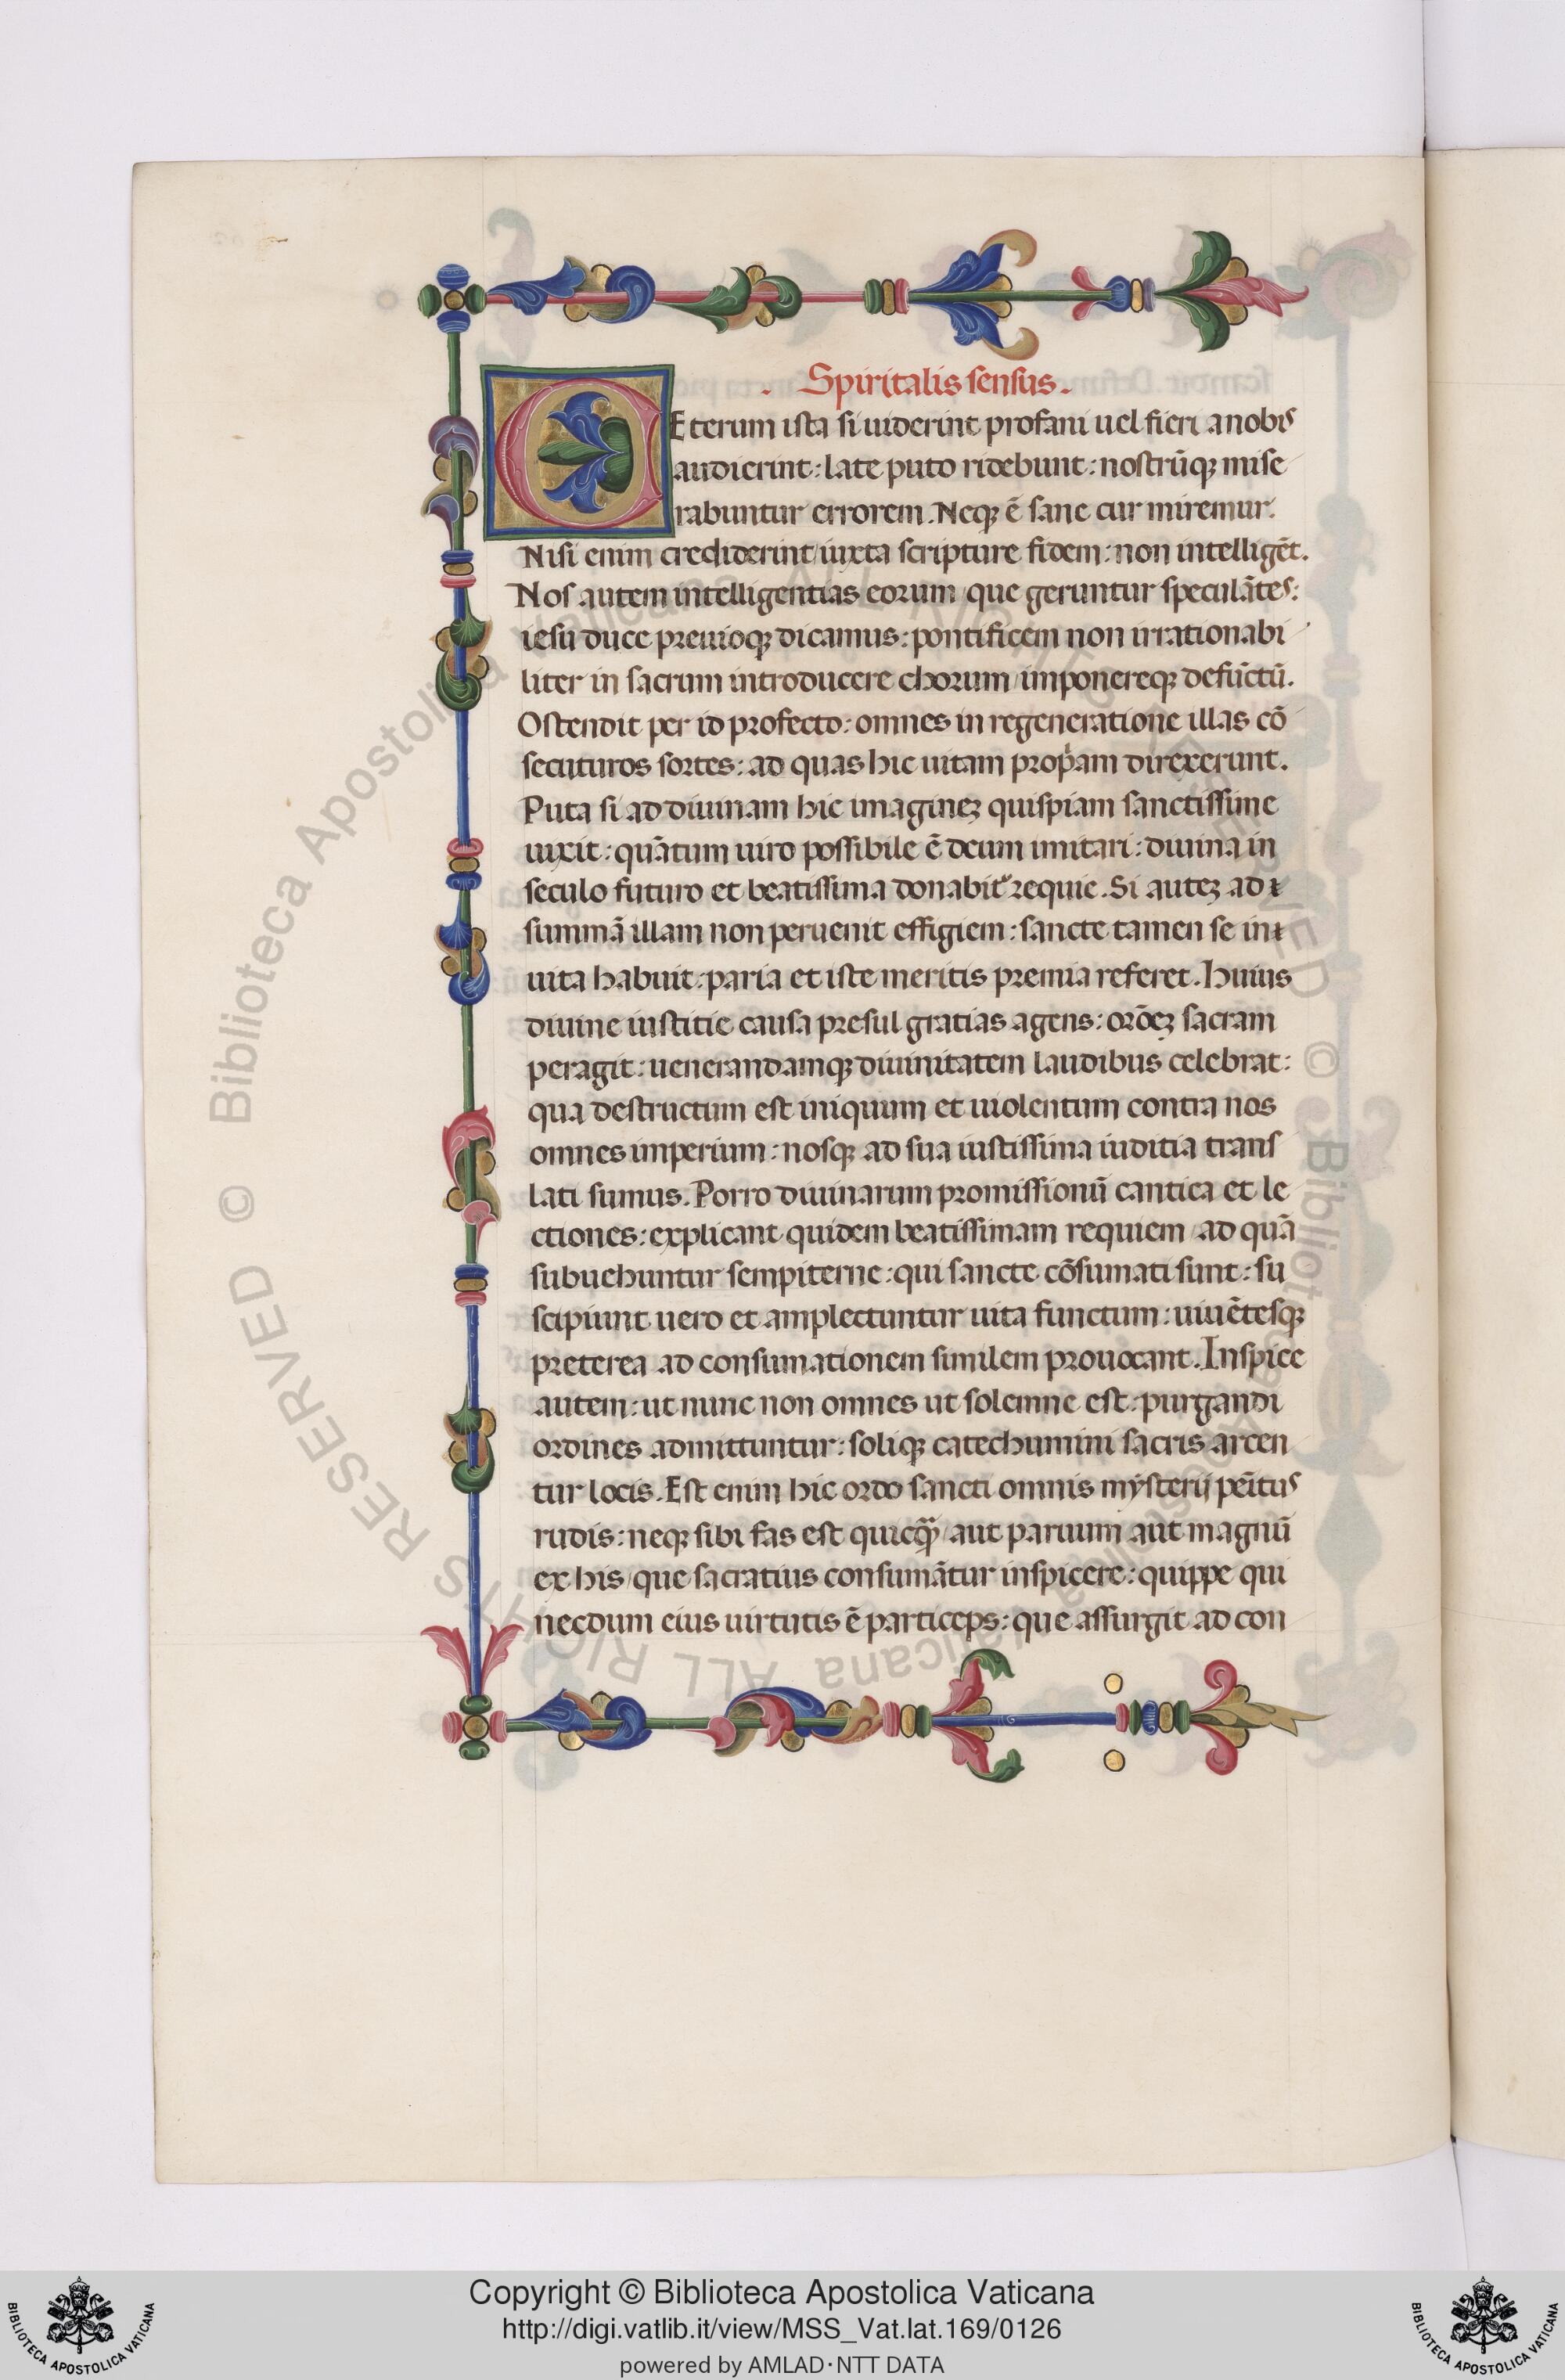 . Spiritalis sensus .
CEterum ista si uiderint profani uel fieri a nobis
audierint: late puto ridebunt: nostrūq; mise
rabuntur errorem. Neq; ē sane cur miremur.
Nisi enim crediderint/ iuxta scripture fidem: non intelligēt.
Nos autem intelligentias eorum/ que geruntur speculātes:
iesu duce preuioq; dicamus: pontificem non irrationabi
liter in sacrum introducere chorum/ imponereq; defūctū.
Ostendit per id profecto: omnes in regeneratione illas cō
secuturos sortes: ad quas hic uitam prop̍am direxerunt.
Puta si ad diuinam hic imaginez quispiam sanctissime
uixit: quātum uiro possibile ē deum imitari: diuina in
seculo futuro et beatissima donabit᷑ requie. Si autez ad
summā illam non peruenit effigiem: sancte tamen se in
uita habuit: paria et iste meritis premia referet. Huius
diuine iustitie causa presul gratias agens: orōez sacram
peragit: uenerandamq; diuinitatem laudibus celebrat:
qua destructum est iniquum et uiolentum contra nos
omnes imperium: nosq; ad sua iustissima iuditia trans
lati sumus. Porro diuinarum promissionū cantica et le
ctiones: explicant quidem beatissimam requiem/ ad quā
subuehuntur sempiterne: qui sancte cōsumati sunt: su
scipiunt uero et amplectuntur uita functum: uiuētesq;
preterea ad consumationem similem prouocant. Inspice
autem: ut nunc non omnes ut solemne est: purgandi
ordines admittuntur: soliq; catechumini sacris arcen
tur locis. Est enim hic ordo sancti omnis mysterij penitus
rudis: neq; sibi fas est quicq̄ aut paruum aut magnū
ex his/ que sacratius consumātur inspicere: quippe qui
necdum eius uirtutis ē particeps: que assurgit ad con
© Biblioteca Apostolica Vaticana ALL RIGHTS RESERVED © Biblioteca Apostolica Vaticana ALL RIGHTS RESERVED
BIBLIOTECA APOSTOLICA VATICANA
Copyright © Biblioteca Apostolica Vaticana
http://digi.vatlib.it/view/MSS_Vat.lat.169/0126
powered by AMLAD·NTT DATA
BIBLIOTECA APOSTOLICA VATICANA